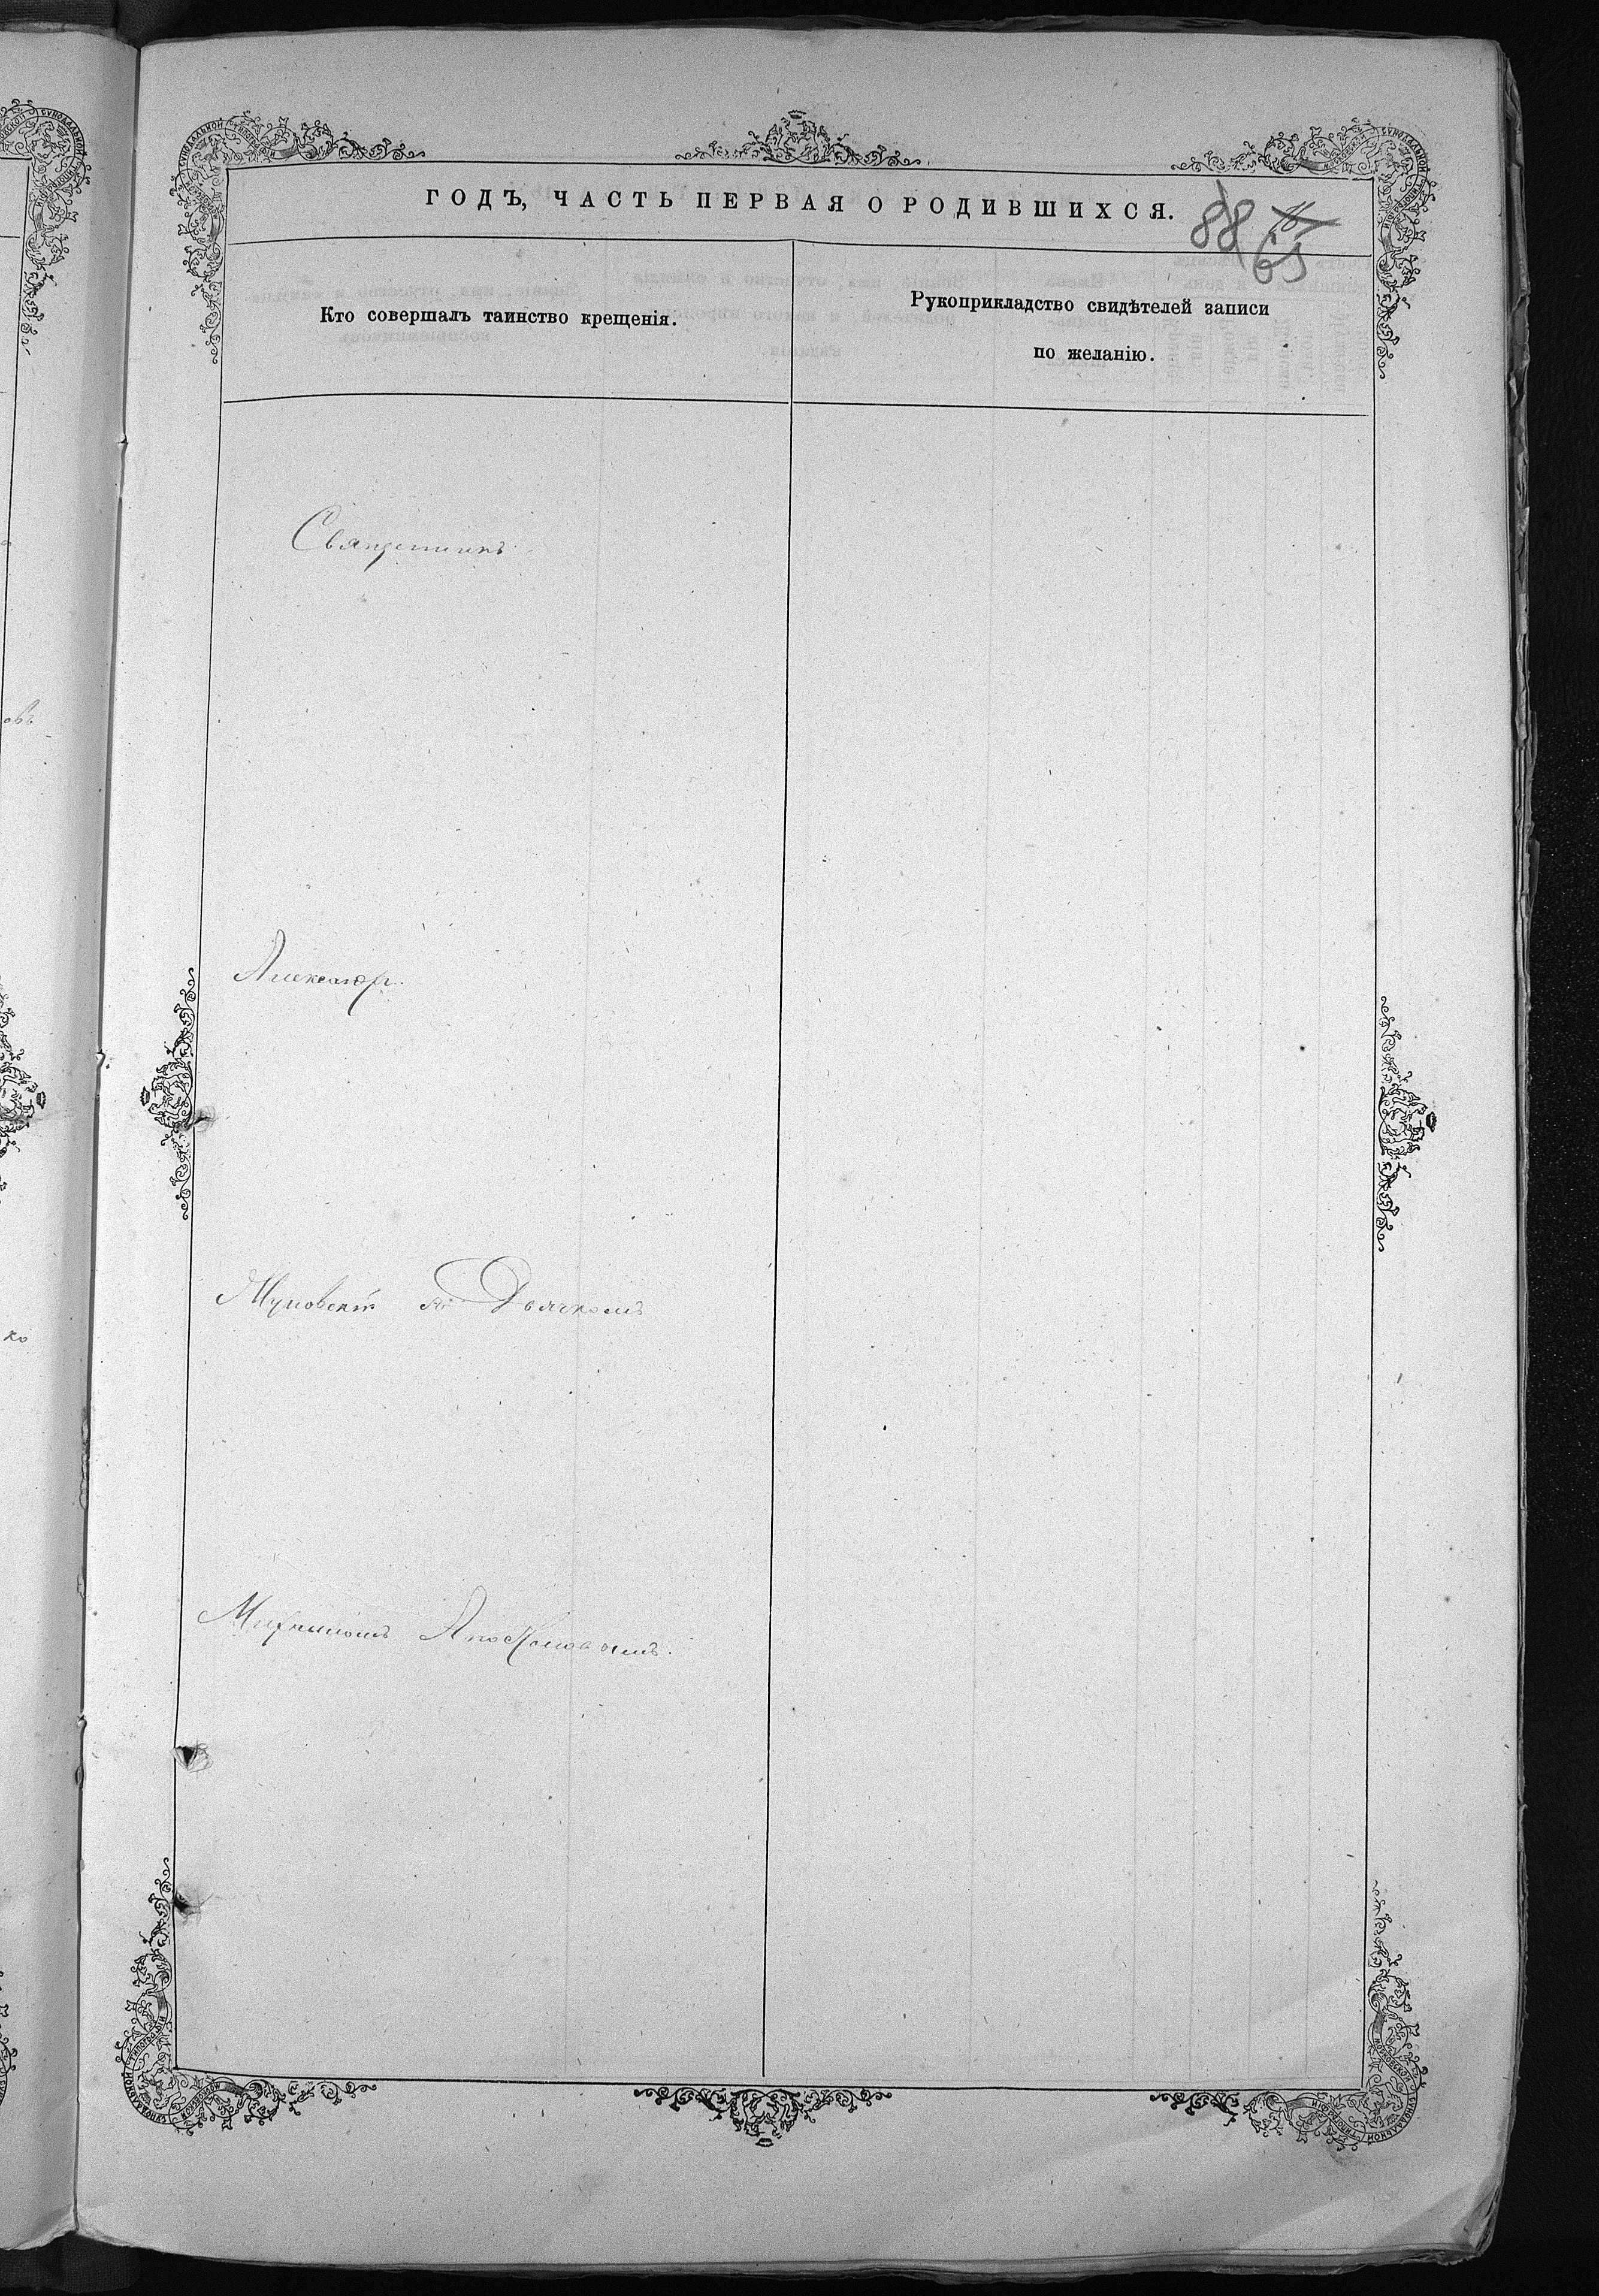 ГОДЪ, ЧАСТЬ ПЕРВАЯ О РОДИВШИХСЯ.
88
65
Кто совершалъ таинство крещенія.
Рукоприкладство свидѣтелей записи
по желанію.
Священникъ
Александръ
съ Дьячкомъ